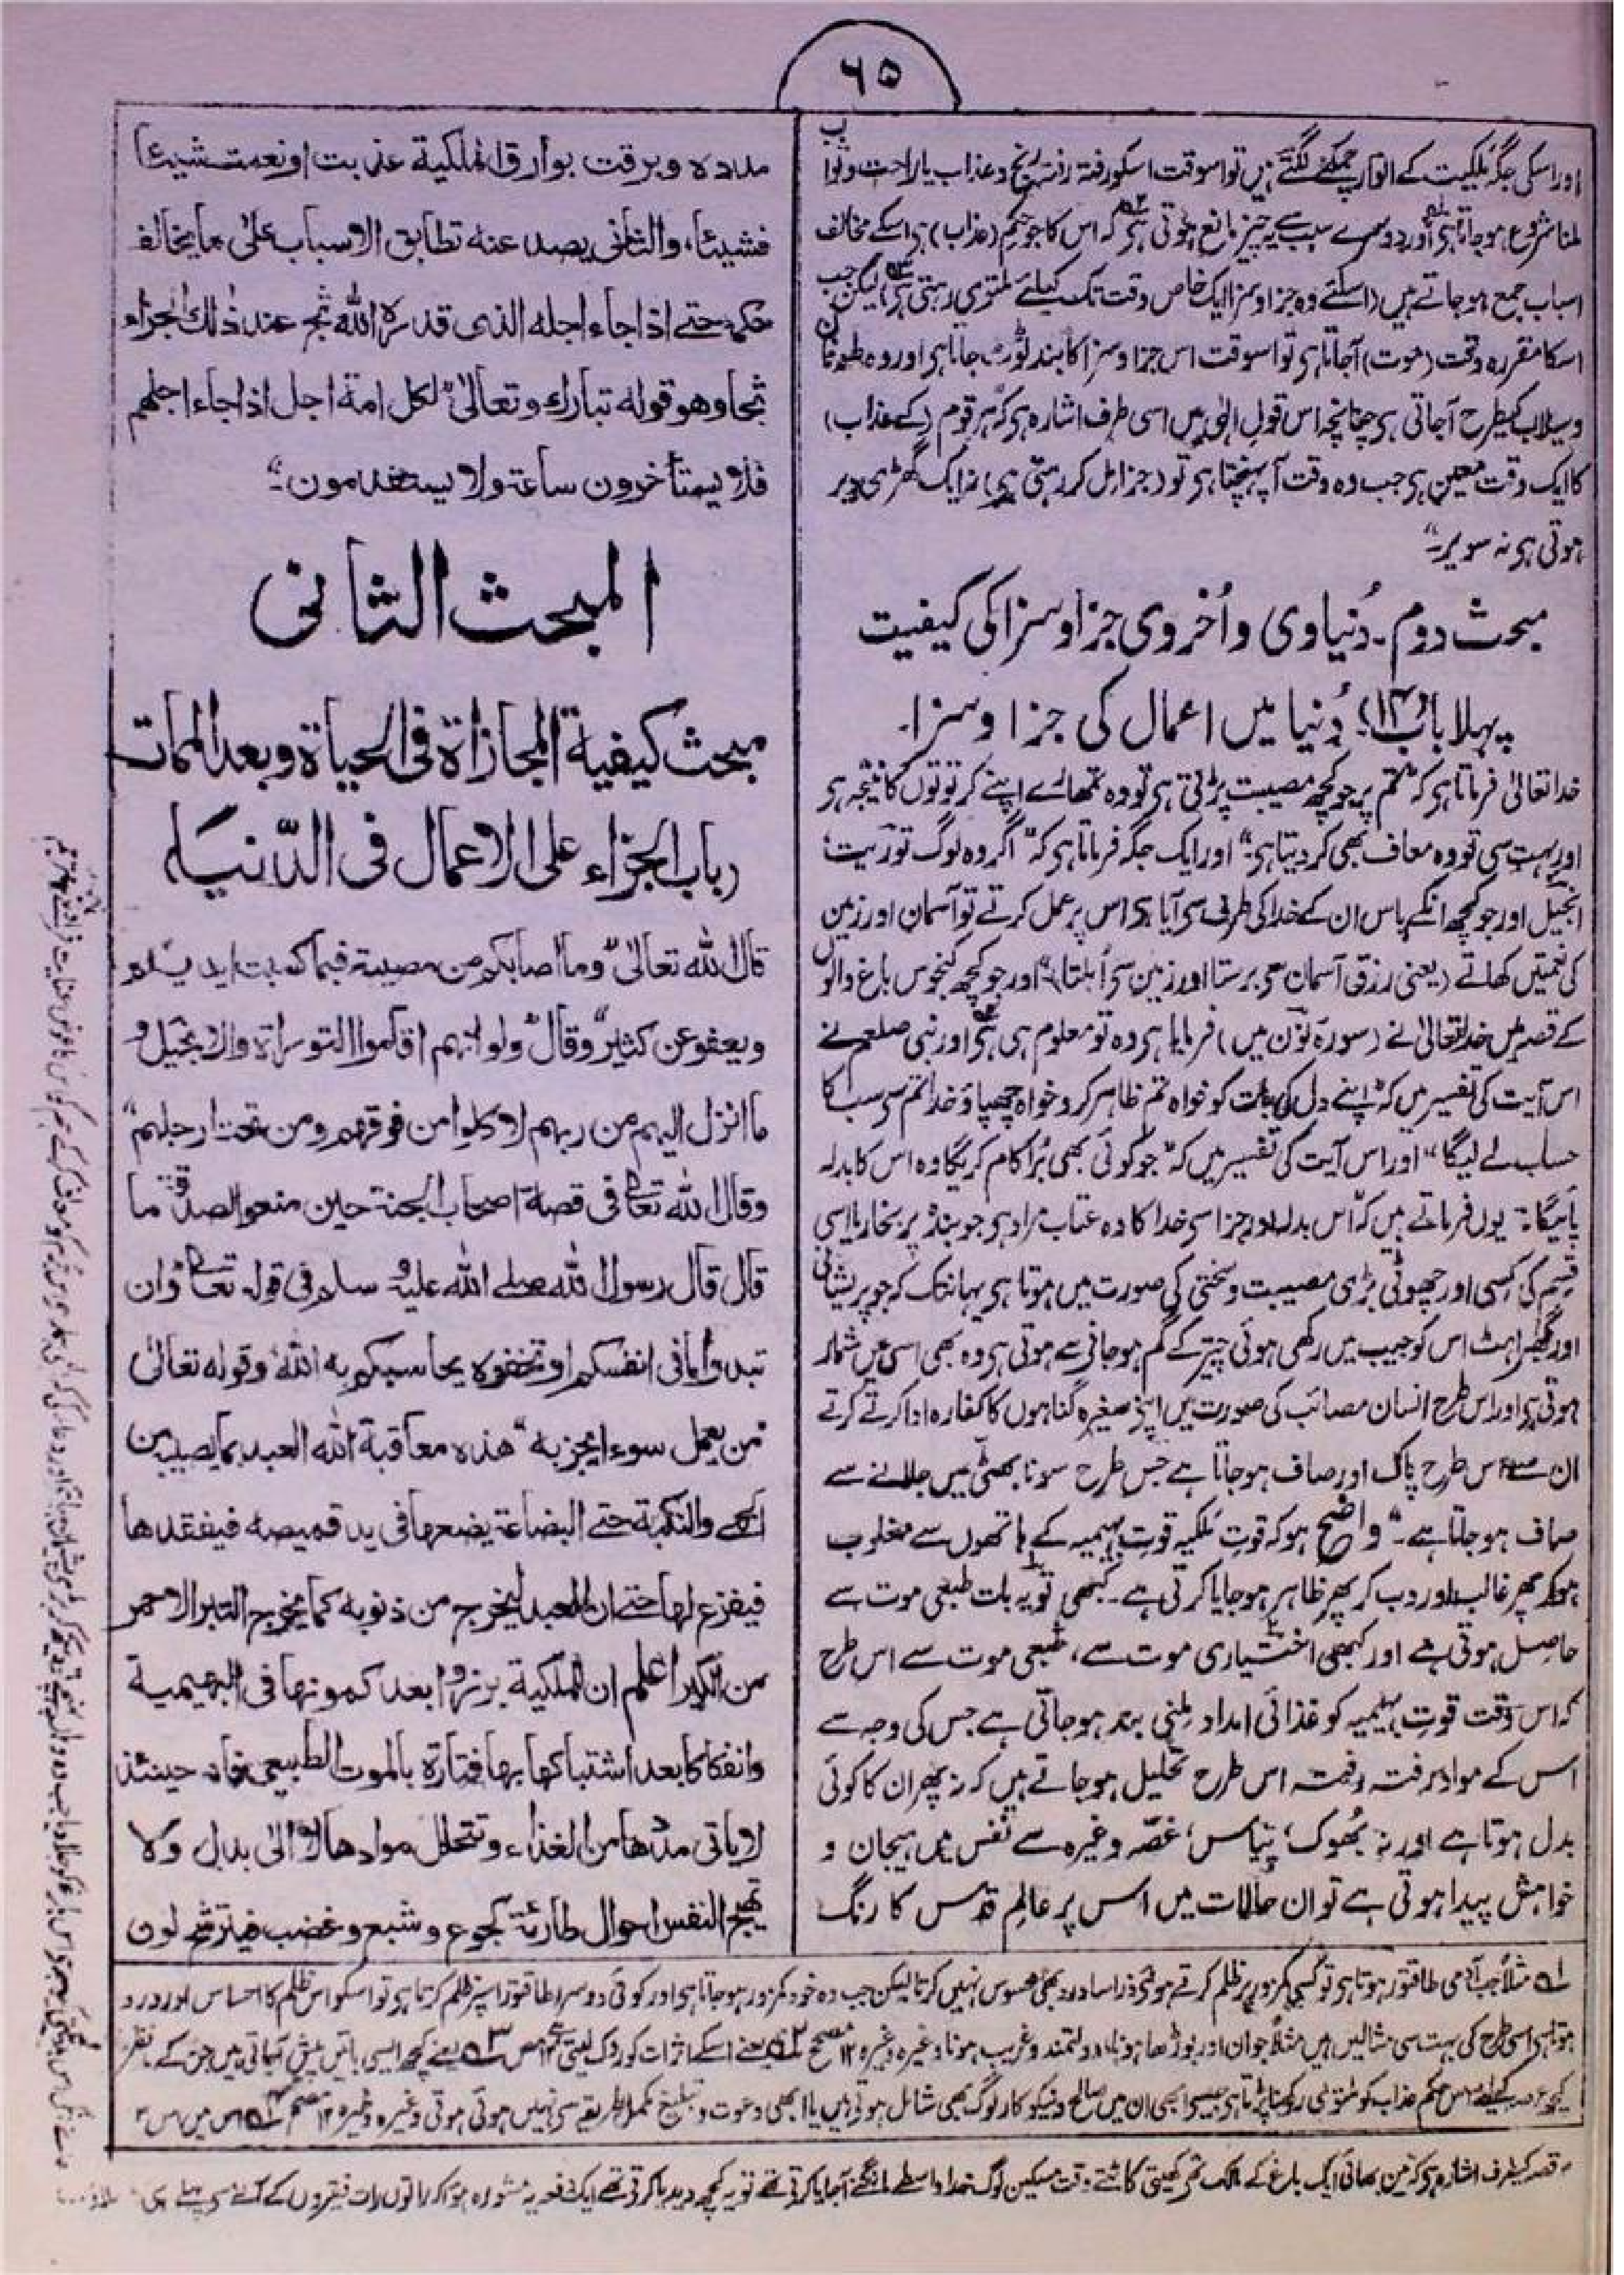 ٦٥
اور اسکی جگہ ملکیت کے انوار چمکنے لگتے ہیں تو اسوقت اسکو رفتہ رفتہ رنج و عذاب یا راحت و ثواب
ملنا شروع ہو جاتا ہی اور دوسرے سبب سے یہ چیز مانع ہوتی ہی کہ اس کا جو حکم (عذاب) ہی اسکے مخالف
اسباب جمع ہو جاتے ہیں (اسلئے وہ جزا و سزا ایک خاص وقت تک کیلئے ملتوی رہتی ہی) لیکن جب
اسکا مقررہ وقت (موت) آجاتا ہی تو اسوقت اس جزا و سزا کا بند ٹوٹ جاتا ہی اور وہ طوفان
و سیلاب کیطرح آجاتی ہی چنانچہ اس قول الٰہی میں اسی طرف اشارہ ہی کہ "ہر قوم (کے عذاب)
کا ایک وقت معین ہی جب وہ وقت آپہنچتا ہی تو (جزا مل کر رہتی ہی) نہ ایک گھڑی دیر
ہوتی ہی نہ سویر۔"
مبحث دوم۔ دُنیاوی و اُخروی جزا و سزا کی کیفیت
پہلا باب (۱۳) دُنیا میں اعمال کی جزا و سزا۔
خدا تعالیٰ فرماتا ہی کہ "تم پر جو کچھ مصیبت پڑتی ہی تو وہ تمھارے اپنے کرتوتوں کا نتیجہ ہی
اور بہت سی تو وہ معاف بھی کر دیتا ہی" اور ایک جگہ فرماتا ہی کہ "اگر وہ لوگ توریت،
انجیل اور جو کچھ انکے پاس ان کے خدا کی طرف سی آیا ہی اس پر عمل کرتے تو آسمان اور زمین
کی نعمتیں کھاتے (یعنی رزق آسمان سی برستا اور زمین سی اُبلتا)" اور جو کچھ کنجوس باغ والوں
کے قصہ میں خدا تعالیٰ نے (سورہ نون میں) فرمایا ہی وہ تو معلوم ہی ہی اور نبی صلعم نے
اس آیت کی تفسیر میں کہ "اپنے دل کی بات کو خواہ تم ظاہر کرو خواہ چھپاؤ خدا تم سی سب کا
حساب لے لیگا" اور اس آیت کی تفسیر میں کہ "جو کوئی بھی بُرا کام کریگا وہ اس کا بدلہ
پائیگا" یوں فرماتے ہیں کہ "اس بدلہ اور جزا سی خدا کا وہ عتاب مراد ہی جو بندہ پر بخار یا اسی
قسم کی کسی اور چھوٹی بڑی مصیبت و سختی کی صورت میں ہوتا ہی یہانتک کہ جو پریشانی
اور گھبراہٹ اس کو جیب میں رکھی ہوئی چیز کے گم ہو جانی سے ہوتی ہی وہ بھی اسی میں شمار
ہوتی ہی اور اس طرح انسان مصائب کی صورت میں اپنی صغیرہ گناہوں کا کفارہ ادا کرتے کرتے
ان سے اس طرح پاک اور صاف ہو جاتا ہے جس طرح سونا بھٹی میں جلانے سے
صاف ہو جاتا ہے۔" واضح ہو کہ قوتِ ملکیہ قوتِ بہیمیہ کے ہاتھوں سے مغلوب
ہو کر پھر غالب اور دب کر پھر ظاہر ہو جایا کرتی ہے۔ کبھی تو یہ بات طبعی موت سے
حاصل ہوتی ہے اور کبھی اختیاری موت سے، طبعی موت سے اس طرح
کہ اس وقت قوتِ بہیمیہ کو غذائی امداد ملنی بند ہو جاتی ہے جس کی وجہ سے
اس کے مواد رفتہ رفتہ اس طرح تحلیل ہو جاتے ہیں کہ نہ پھر ان کا کوئی
بدل ہوتا ہے اور نہ بھوک، پیاس، غصّہ وغیرہ سے نفس میں ہیجان و
خواہش پیدا ہوتی ہے تو ان حالات میں اس پر عالمِ قدس کا رنگ
مدده وبرقت بوارق الملكية عذبت او نعمت شيئا
فشيئا، والثانى يصد عنه تطابق الاسباب على ما يخالف
حكمه حتے اذا جاء اجله الذى قدره الله ثج عند ذلك الجزاء
ثجا وهو قوله تبارك وتعالىٰ "لكل امة اجل اذا جاء اجلهم
فلا يستأخرون ساعة ولا يستقدمون"
المبحث الثانى
مبحث كيفية المجازاة فى الحياة وبعد الممات
رباب الجزاء على الاعمال فى الدّنيا
قال الله تعالىٰ "وما اصابكم من مصيبة فبما كسبت ايديكم
ويعفو عن كثير" وقال "ولو انهم اقاموا التوراة والانجيل و
ما انزل اليهم من ربهم لاكلوا من فوقهم ومن تحت ارجلهم"
وقال الله تعالى فى قصة اصحاب الجنة حين منعوا الصدقة ما
قال قال رسول الله صلے الله عليه وسلم فى قوله تعالى "وان
تبدوا ما فى انفسكم او تخفوه يحاسبكم به الله" وقوله تعالىٰ
"من يعمل سوءا يجز به" هذه معاقبة الله العبد بما يصيبه من
الحمى والنكبة حتے البضاعة يضعها فى يد قميصه فيفقدها
فيفزع لها حتے ان العبد ليخرج من ذنوبه كما يخرج التبر الاحمر
من الكير اعلم ان الملكية بروزا بعد كمونها فى البهيمية
وانفكاكا بعد اشتباكها بها فتارة بالموت الطبيعى فانه حينئذ
لا ياتى مددها من الغذاء وتتحلل موادها لا الى بدل ولا
تهيج النفس احوال طارئة كجوع وشبع وغضب فيترشح لون
لہ مثلاً جب آدمی طاقتور ہوتا ہی تو کسی کمزور پر ظلم کرتے ہوئے ذرا سا درد بھی محسوس نہیں کرتا لیکن جب وہ خود کمزور ہو جاتا ہی اور کوئی دوسرا طاقتور اسپر ظلم کرتا ہی تو اسکو اس ظلم کا احساس اور درد
ہوتا ہی اسی طرح کی بہت سی مثالیں ہیں مثلاً جوان اور بوڑھا ہونا، دولتمند و غریب ہونا وغیرہ وغیرہ ۱۲ مصحح یعنے اسکے اثرات کو روک لیتی یعنے کچھ ایسی باتیں پیش آجاتی ہیں جن کے
اس حکم عذاب کو ملتوی رکھنا پڑتا ہی جیسے ابھی ان میں صالح و نیکوکار لوگ بھی شامل ہوتے ہیں یا ابھی دعوت و تبلیغ مکمل طریقے سی نہیں ہوئی ہوتی وغیرہ وغیرہ ۱۲
قصہ کیطرف اشارہ ہی کہ تین بھائی ایک باغ کے مالک تھے کھیتی کاٹتے وقت مسکین لوگ خدا واسطے مانگنے آجایا کرتی تھے تو یہ کچھ دیدیا کرتی تھے ایک دفعہ یہ مشورہ ہوا کہ راتوں رات فقیروں کے آنے سی پہلے ہی